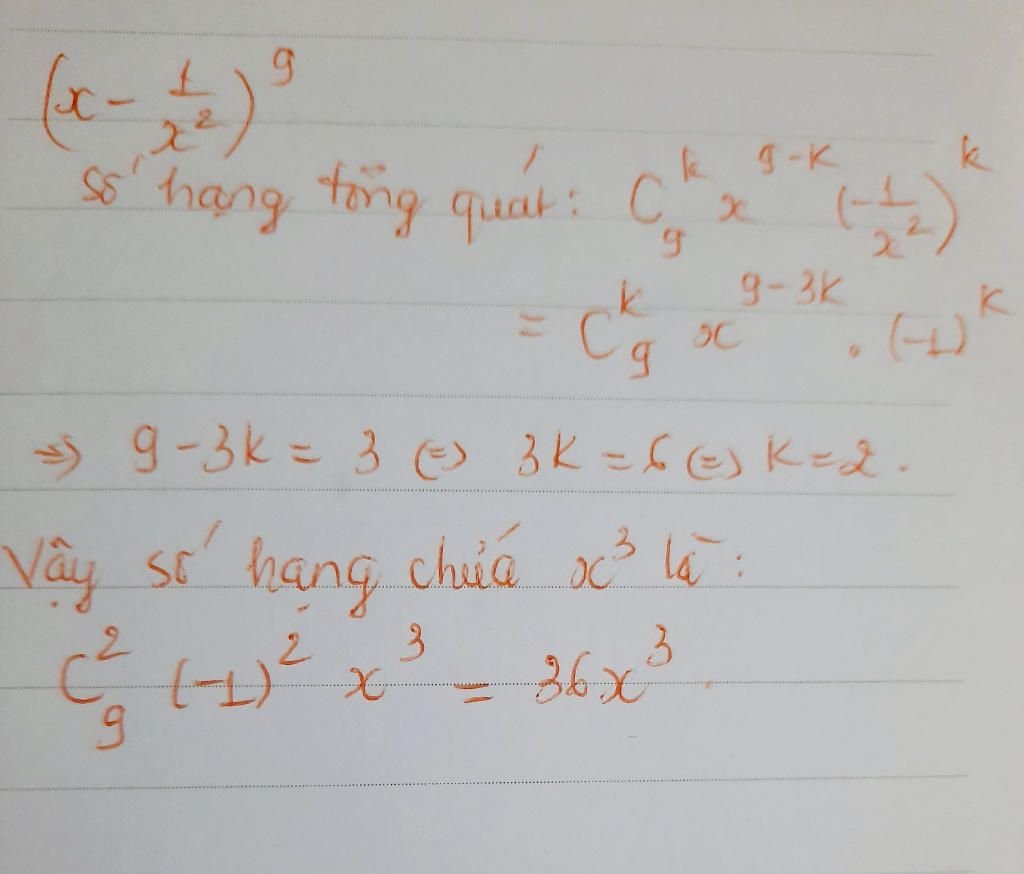 (x - 1/x²)⁹
số hạng tổng quát: C₉ᵏ x⁹⁻ᵏ (-1/x²)ᵏ
= C₉ᵏ x⁹⁻³ᵏ . (-1)ᵏ
=> 9-3k = 3 (=) 3k = 6 (=) k=2.
Vậy số hạng chứa x³ là:
C₉² (-1)² x³ = 36x³.